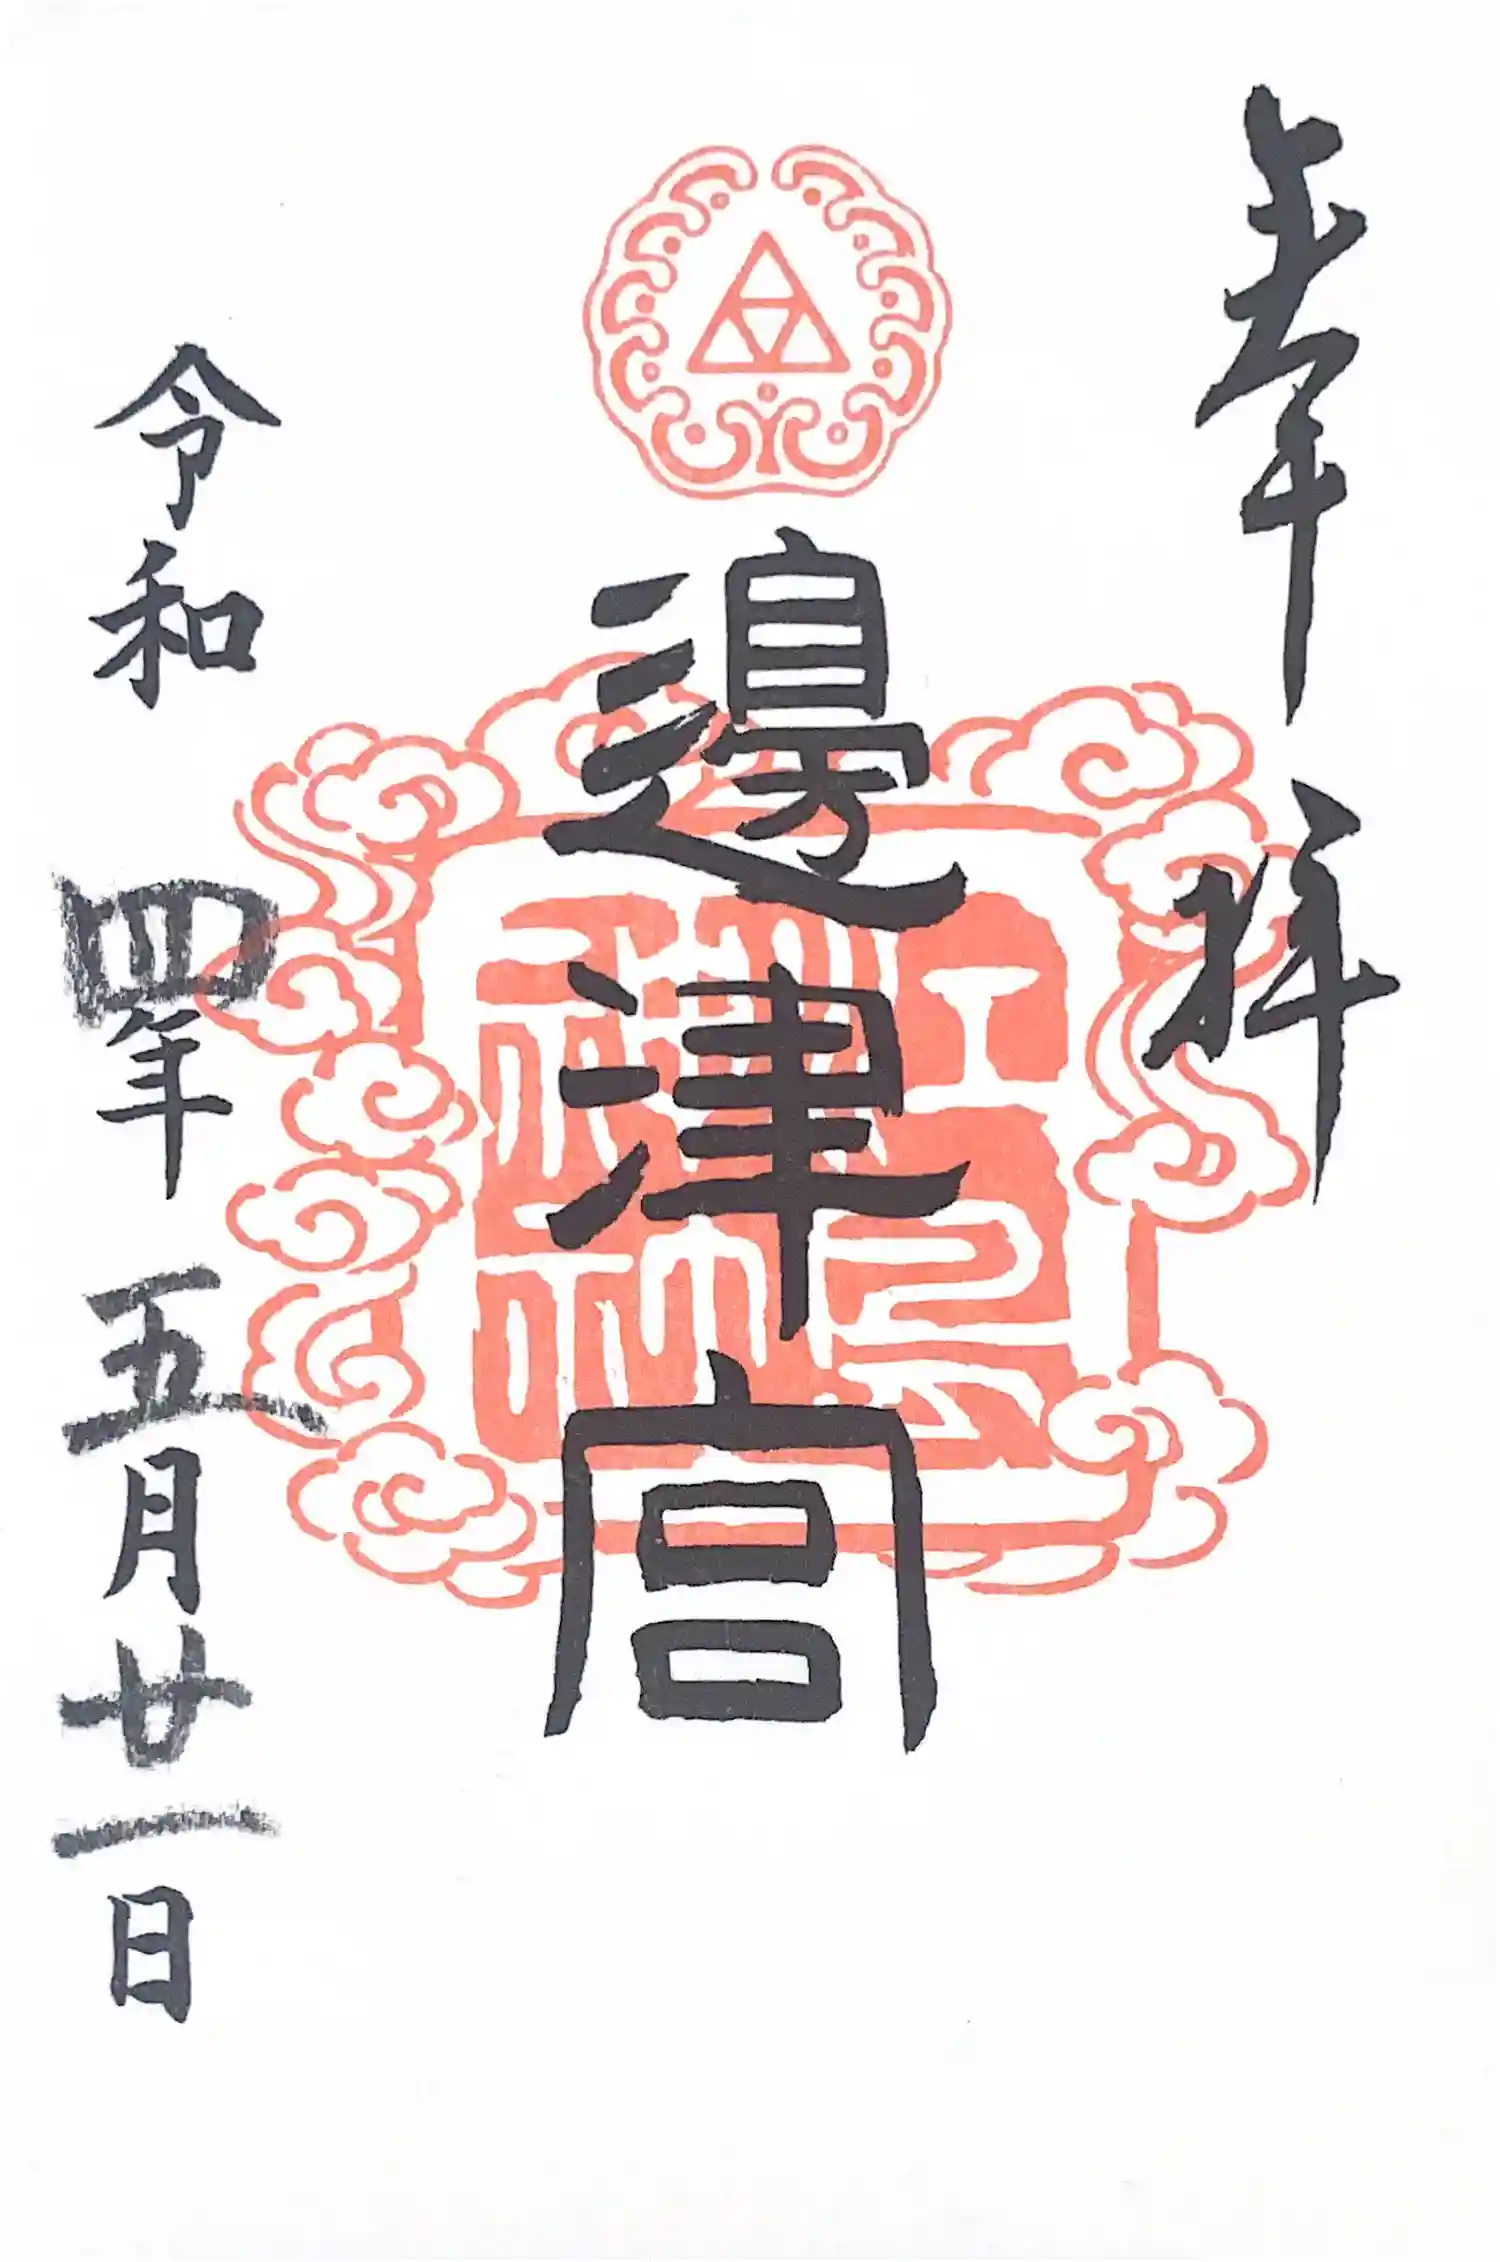 奉拝
邊津宮
令和四年五月廿一日